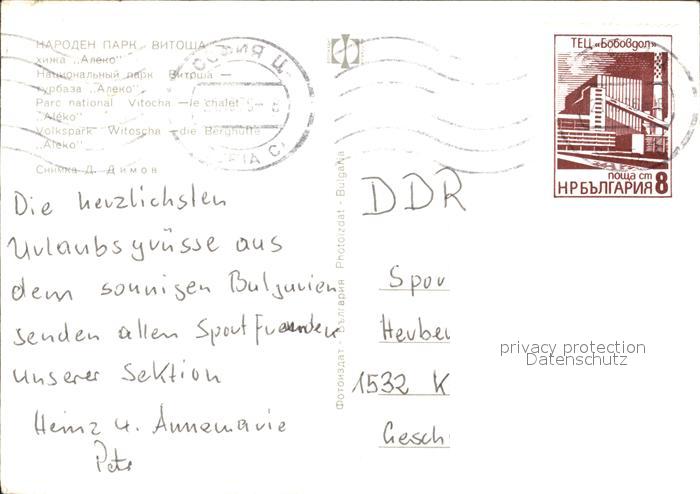 НАРОДЕН ПАРК ВИТОША
хижа „Алеко"
Национальный парк Витоша —
турбаза „Алеко"
Parc national Vitocha — le chalet
"Aléko"
Volkspark Witoscha — die Berghütte
"Aleko"
Снимка Д. Димов
СОФИЯ Ц.
Die herzlichsten
Urlaubsgrüsse aus
dem sonnigen Bulgarien
senden allen Sportfreunden
unserer Sektion
Heinz u. Annemarie
Фотоиздат - България Photoizdat - Bulgaria
ТЕЦ „Бобовдол"
поща ст
НРБЪЛГАРИЯ 8
DDR
Spor
Herber
1532 K
Gesch
privacy protection
Datenschutz